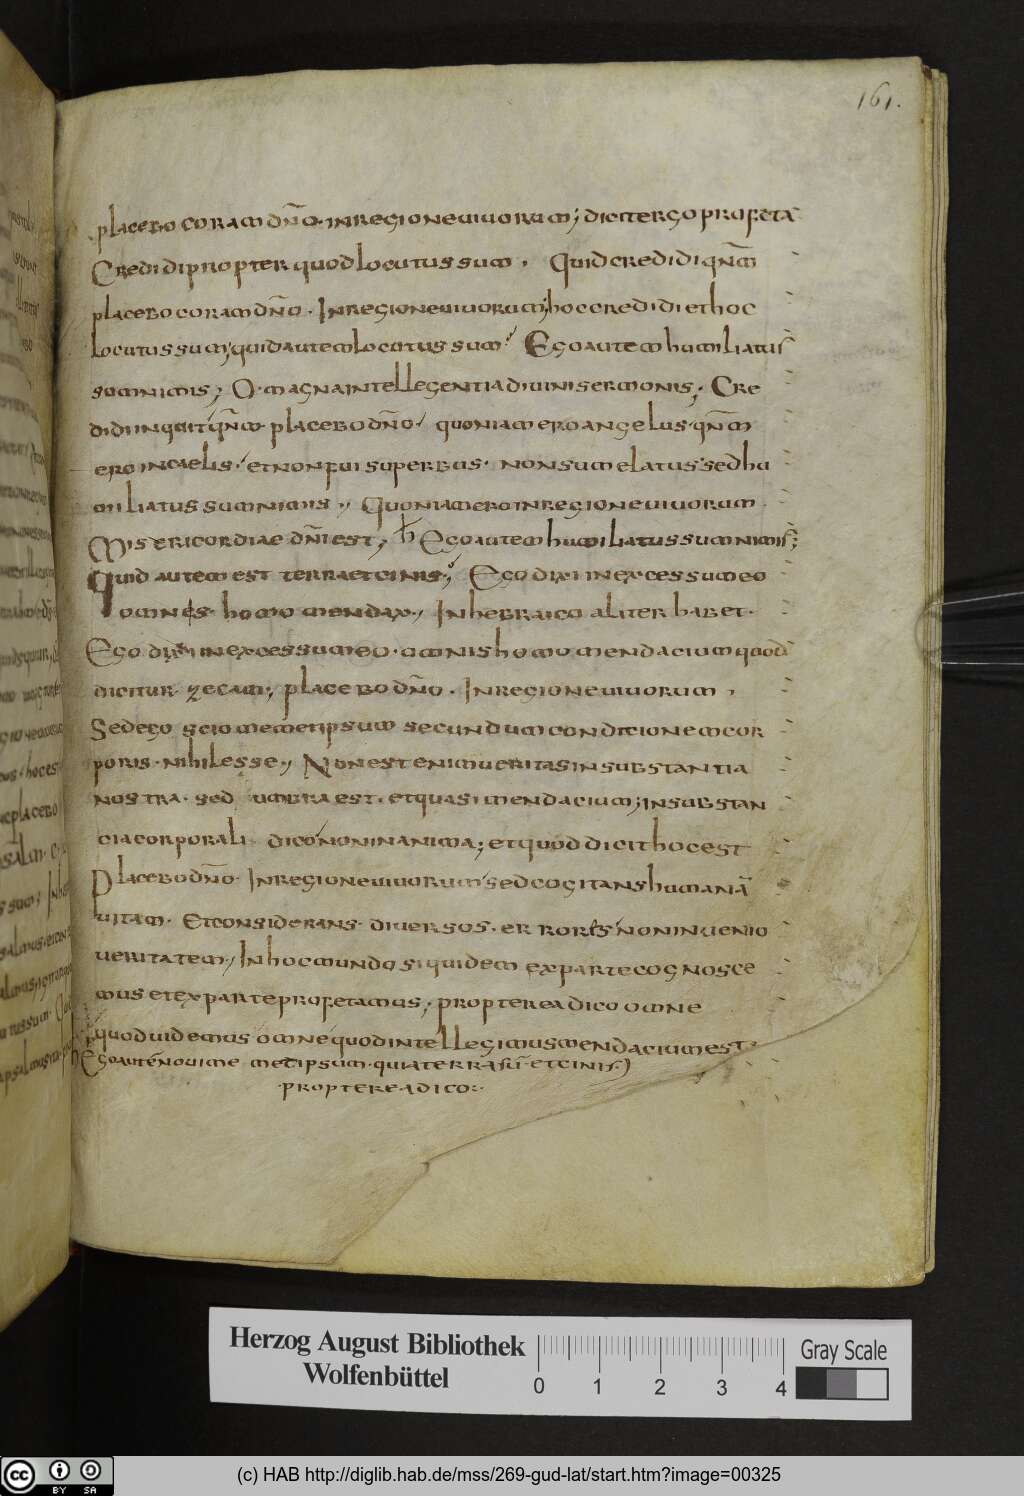 161.
placebo coram dn̄o. in regione uiuorum; dicit ergo profeta
Credidi propter quod locutus sum, Quid credidi qn̄m
placebo coram dn̄o. In regione uiuorum; hoc credidi et hoc
locutus sum; quid autem locutus sum? Ego autem humiliatus
sum nimis; O magna intellegentia diuini sermonis; Cre
didi inquit qn̄m placebo dn̄o, quoniam ero angelus. qn̄m
ero in caelis. et non fui superbus. non sum elatus. sed hu
miliatus sum nimis; Quoniam ero in regione uiuorum.
Misericordiae dn̄i est; h Ego autem humiliatus sum nimis;
Quid autem est terra et cinis; Ego dixi in excessu meo
omnes homo mendax; In hebraico aliter habet.
Ego dixi in excessu meo. omnis homo mendacium quod
dicitur zecam; placebo dn̄o. In regione uiuorum,
Sed ego scio memetipsum secundum conditionem cor
poris. nihil esse; Non est enim ueritas in substantia
nostra. sed umbra est. et quasi mendacium; in substan
cia corporali dico non in anima; et quod dicit hoc est
Placebo dn̄o. In regione uiuorum sed cogitans humanā
uitam. Et considerans diuersos. errores non inuenio
ueritatem; In hoc mundo siquidem ex parte cognosce
mus et ex parte profetamus; propterea dico omne
quod uidemus omne quod intellegimus mendacium est.
h Ego autē noui memetipsum. quia terra sū. et cinis.)
.propterea dico:.
Herzog August Bibliothek
Wolfenbüttel
0 1 2 3 4
Gray Scale
cc BY SA
(c) HAB http://diglib.hab.de/mss/269-gud-lat/start.htm?image=00325